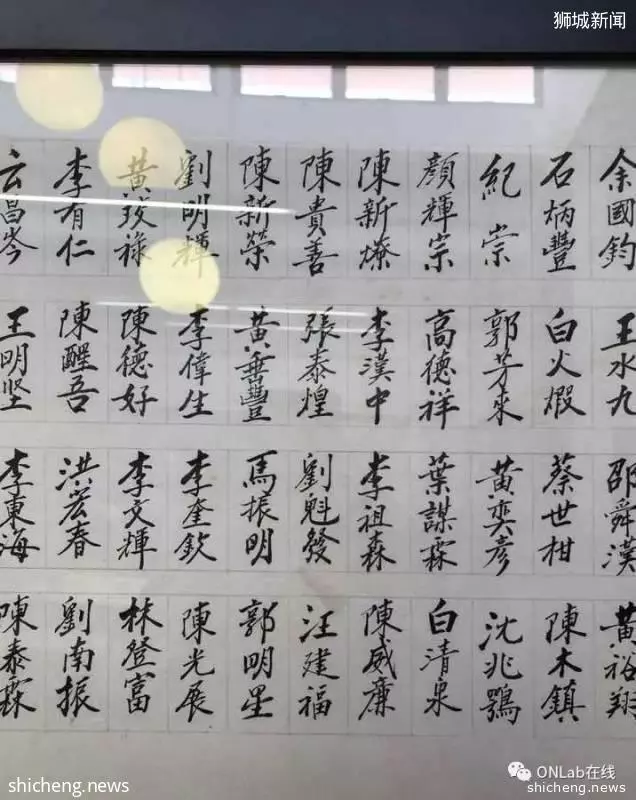 狮城新闻
余國鈞
石炳豐
紀崇
顔輝宗
陳新燎
陳貴善
陳新榮
劉明輝
黃
李有仁
云昌岑
王水九
白火煅
郭芳來
高德祥
李漢中
張泰煌
黃垂豐
李偉生
陳德好
陳醒吾
王明坚
邵舜漢
蔡世柑
黃奕彥
葉謀霖
李祖森
劉魁發
馬振明
李奎欽
李文輝
洪宏春
李東海
黃裕翔
陳木鎮
沈兆鶚
白清泉
陳威廉
汪建福
郭明星
陳光展
林登富
劉南振
陳泰霖
ONLab在线
shicheng.news
shicheng.news